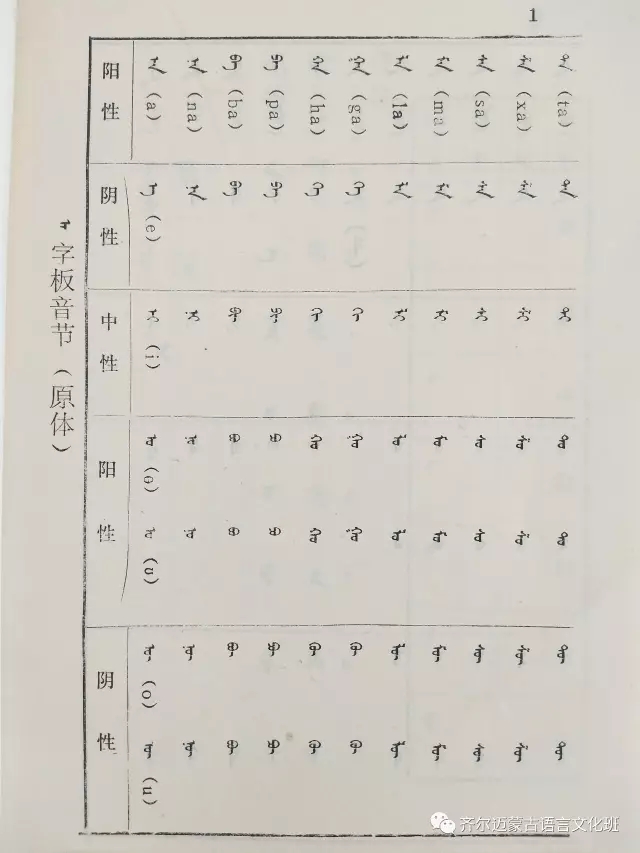 1
字板音节（原体）
阳性 ᠠ (a) ᠨᠠ (na) ᠪᠠ (ba) ᠫᠠ (pa) ᠬᠠ (ha) ᠭᠠ (ga) ᠯᠠ (la) ᠮᠠ (ma) ᠰᠠ (sa) ᠱᠠ (xa) ᠲᠠ (ta)
阴性 ᠡ (e) ᠨᠡ ᠪᠡ ᠫᠡ ᠬᠡ ᠭᠡ ᠯᠡ ᠮᠡ ᠰᠡ ᠱᠡ ᠲᠡ
中性 ᠢ (i) ᠨᠢ ᠪᠢ ᠫᠢ ᠬᠢ ᠭᠢ ᠯᠢ ᠮᠢ ᠰᠢ ᠱᠢ ᠲᠢ
阳性 ᠣ ᠨᠣ ᠪᠣ ᠫᠣ ᠬᠣ ᠭᠣ ᠯᠣ ᠮᠣ ᠰᠣ ᠱᠣ ᠲᠣ
ᠤ ᠨᠤ ᠪᠤ ᠫᠤ ᠬᠤ ᠭᠤ ᠯᠤ ᠮᠤ ᠰᠤ ᠱᠤ ᠲᠤ
阴性 ᠥ (o) ᠨᠥ ᠪᠥ ᠫᠥ ᠬᠥ ᠭᠥ ᠯᠥ ᠮᠥ ᠰᠥ ᠱᠥ ᠲᠥ
ᠦ (u) ᠨᠦ ᠪᠦ ᠫᠦ ᠬᠦ ᠭᠦ ᠯᠦ ᠮᠦ ᠰᠦ ᠱᠦ ᠲᠦ
齐尔迈蒙古语言文化班